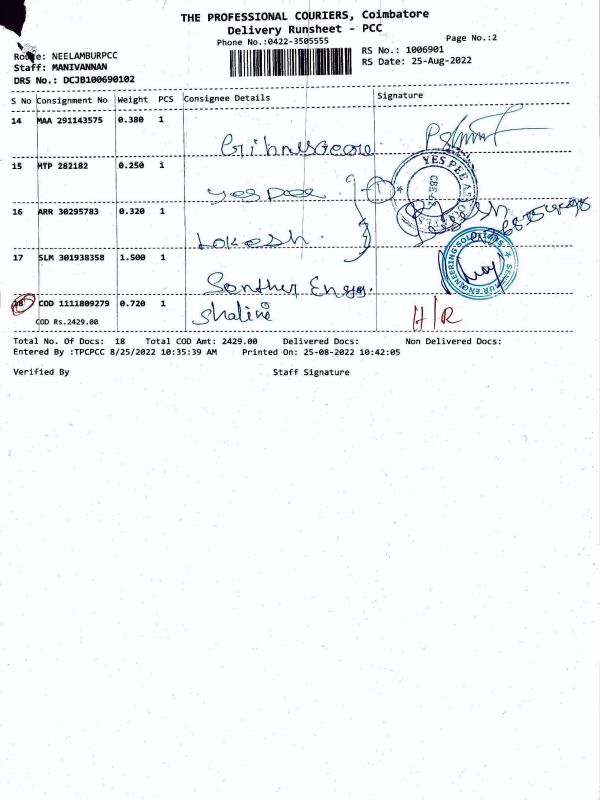 THE PROFESSIONAL COURIERS, Coimbatore
Delivery Runsheet - PCC
Phone No.:0422-3505555
Page No.:2
Route: NEELAMBURPCC
RS No.: 1006901
Staff: MANIVANNAN
RS Date: 25-Aug-2022
DRS No.: DCJB100690102
S No Consignment No Weight PCS Consignee Details Signature
14 MAA 291143575 0.380 1
15 MTP 282182 0.250 1
Yes pee
YES PEE
16 ARR 30295783 0.320 1
Lokesh.
17 SLM 301938358 1.500 1
Senthur Engg.
ENGINEERING SOLUTIONS
18 COD 1111809279 0.720 1 Shalini H/R
COD Rs.2429.00
Total No. Of Docs: 18 Total COD Amt: 2429.00 Delivered Docs: Non Delivered Docs:
Entered By :TPCPCC 8/25/2022 10:35:39 AM Printed On: 25-08-2022 10:42:05
Verified By Staff Signature